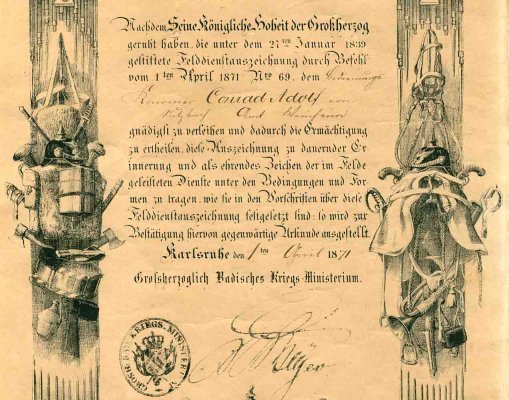 Nachdem Seine Königliche Hoheit der Großherzog
geruht haben, die unter dem 27ten Januar 1839
gestiftete Felddienstauszeichnung durch Befehl
vom 1ten April 1871 Nro 69, dem
Kanonier Conrad Adolf von
Sulzbach Amt Weinheim
gnädigst zu verleihen und dadurch die Ermächtigung
zu ertheilen, diese Auszeichnung zu dauernder Er
innerung und als ehrendes Zeichen der im Felde
geleisteten Dienste unter den Bedingungen und For
men zu tragen, wie sie in den Vorschriften über diese
Felddienstauszeichnung festgesetzt sind: so wird zur
Bestätigung hiervon gegenwärtige Urkunde ausgestellt.
Karlsruhe den 1ten April 1871
Großherzoglich Badisches Kriegs-Ministerium.
GROSH. BAD. KRIEGS. MINISTERIUM